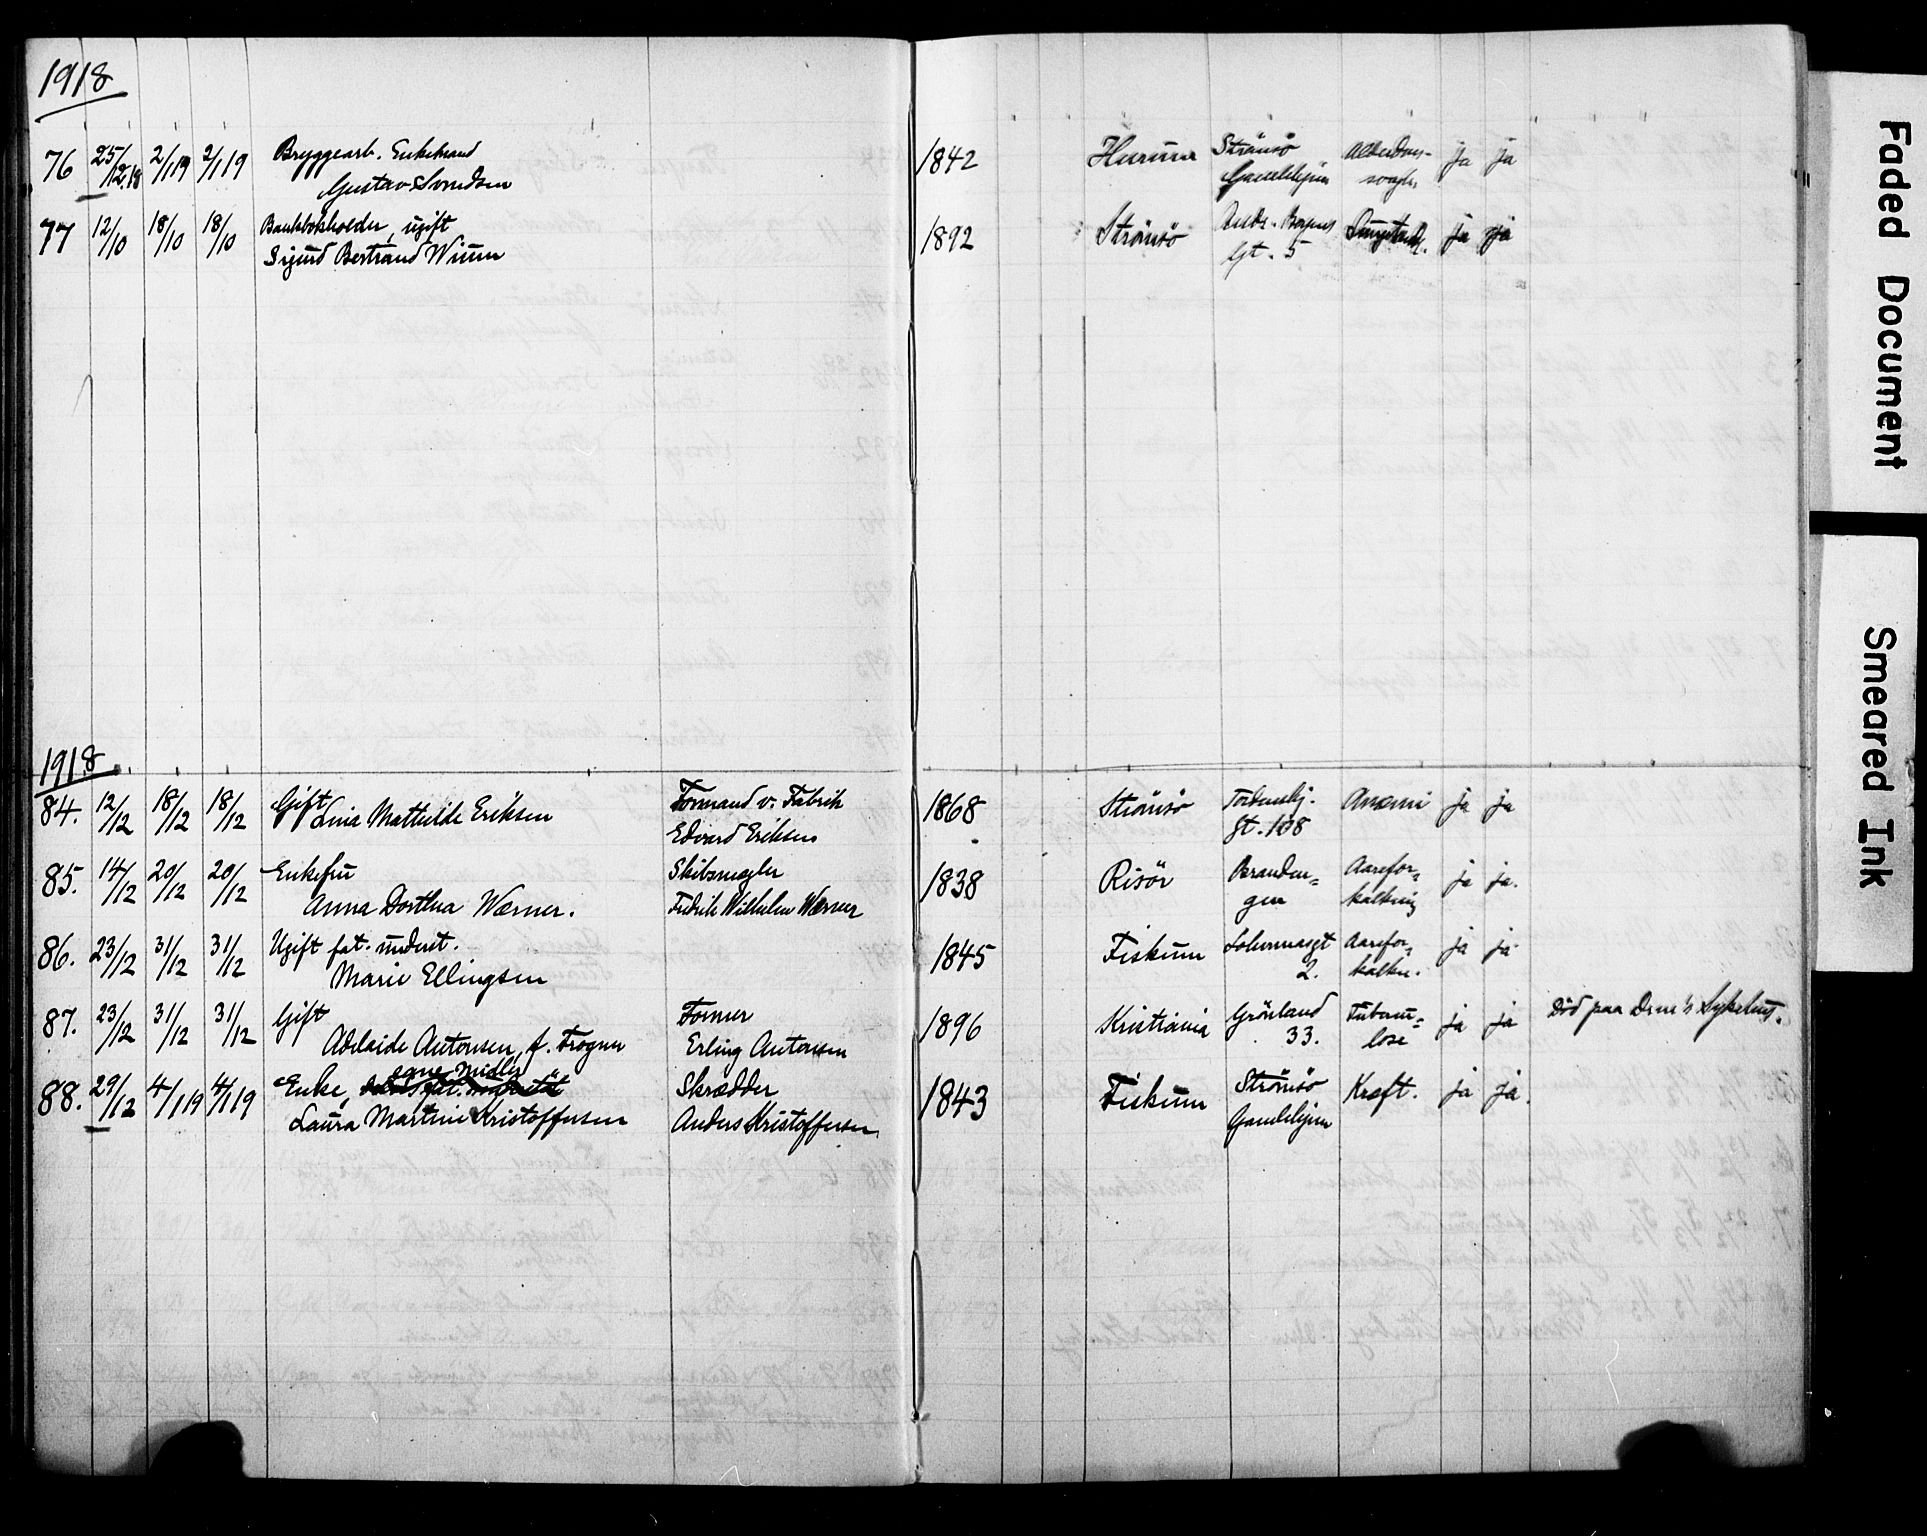 1918
76 25/12.18 2/1 19 2/1 19 Bryggearb. Enkemand 1842 Hurum Strömsö Alderdoms- ja ja
Gustav Svendsen Gamlehjem svagh.
77 12/10 18/10 18/10 Bankbokholder, ugift 1892 Strömsö ja ja
Sigurd Bertrand Wiium gt. 5
1918
84. 12/12 18/12 18/12 Gift Formand v. Fabrik 1868 Strömsö Tordenskj. Anæmi ja ja
Lina Mathilde Eriksen Edvard Eriksen gt. 108
85. 14/12 20/12 20/12 Enkefru Skibsmægler 1838 Risör Branden= Aarefor= ja ja.
Anna Dorthea Wærner. Fredrik Wilhelm Wærner gen kalkning
86. 23/12 31/12 31/12 Ugift fat. underst. 1845 Fiskum Aarefor= ja ja
Marie Ellingsen 2. kalkn.
87. 23/12 31/12 31/12 Gift Former 1896 Kristiania Grönland Tuberku= ja ja Död paa Drm's Sykehus.
Adelaide Antonsen, f. Frogner Erling Antonsen 33. lose
egne midler
88. 29/12 4/1 19 4/1 19 Enke, Skrædder 1843 Fiskum Strömsö Kræft. ja ja.
Laura Martine Kristoffersen Anders Kristoffersen Gamlehjem
Faded Document
Smeared Ink